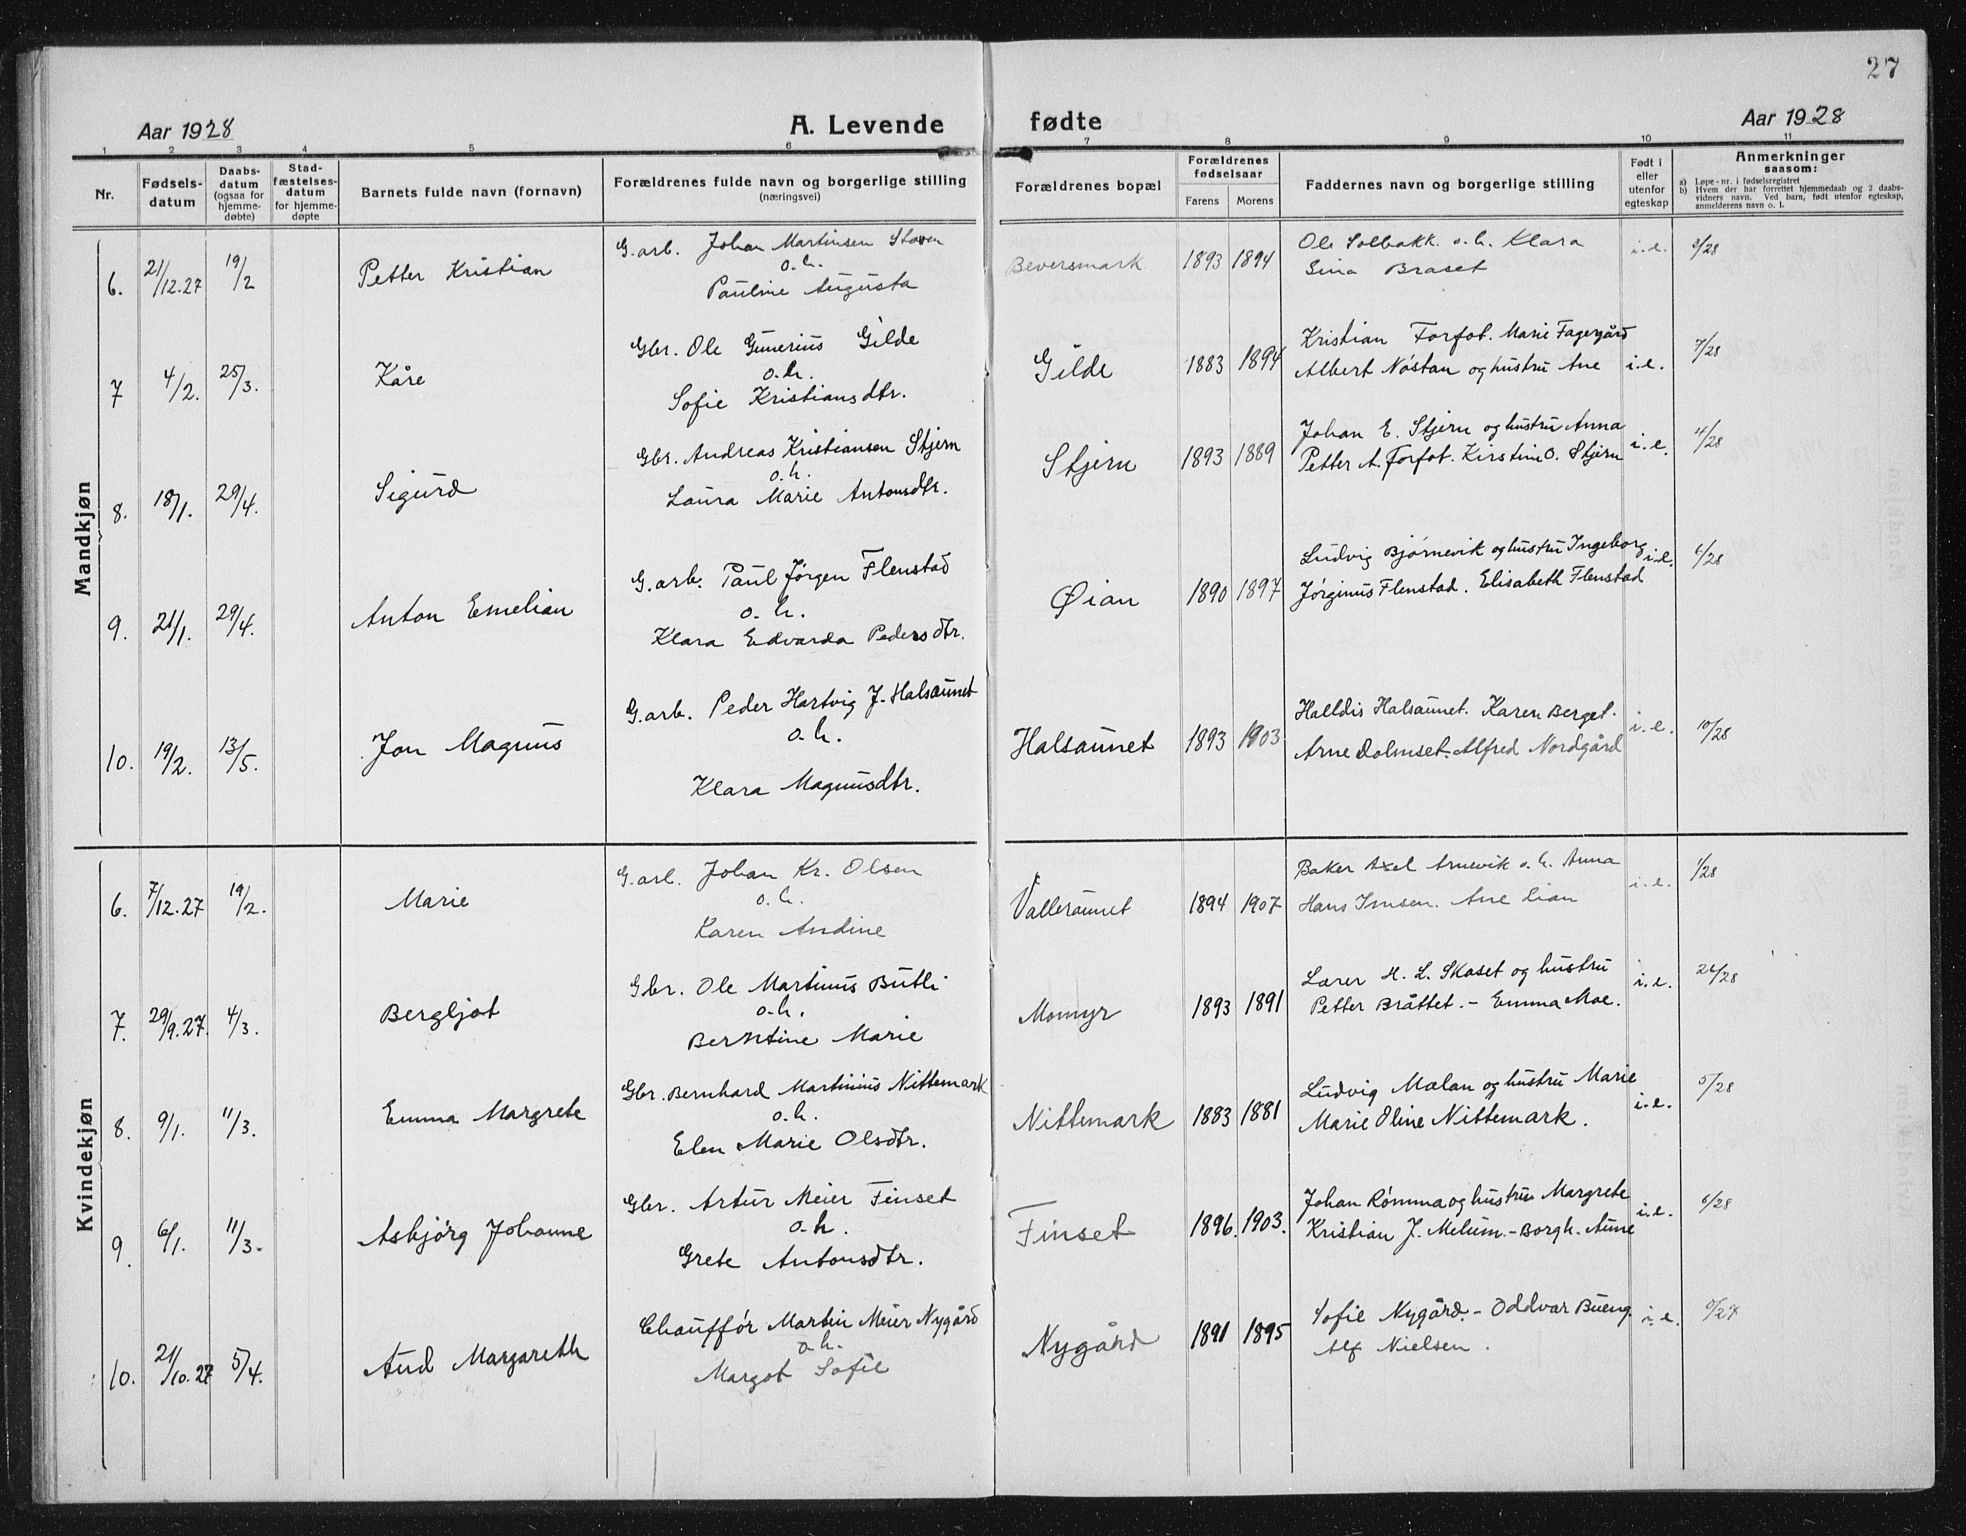 27
Aar 1928
A. Levende fødte
Aar 1928
1 2 3 4 5 6 7 8 9 10 11
Nr.
Fødsels-
datum
Daabs-
datum
(ogsaa for
hjemme-
døbte)
Stad-
fæstelses-
datum
for hjemme-
døpte
Barnets fulde navn (fornavn)
Forældrenes fulde navn og borgerlige stilling
(næringsvei)
Forældrenes bopæl
Forældrenes
fødselsaar
Farens Morens
Faddernes navn og borgerlige stilling
Født i
eller
utenfor
egteskap
Anmerkninger
saasom:
a) Løpe-nr. i fødselsregistret
b) Hvem der har forrettet hjemmedaab og 2 daabs-
vidners navn. Ved barn, født utenfor egteskap,
anmelderens navn o. l.
Mandkjøn
G. arb. Johan Martinsen Støven
o.h.
Pauline Augusta
6. 21/12.27 19/2 Petter Kristian
Beversmark 1893 1894
Ole Solbakk o.h. Klara
Gina Braset
i.e. 2/28
Gbr. Ole Gunerius Gilde
o.h.
Sofie Kristiansdtr.
7 4/2. 25/3. Kåre
Gilde 1883 1894
Kristian Forfot. Marie Fagergård
Albert Nøstan og hustru Ane
i.e. 7/28
Gbr. Andreas Kristiansen Stjern
o.h.
Laura Marie Antonsdtr.
8. 18/1. 29/4. Sigurd
Stjern 1893 1889
Johan E. Stjern og hustru Anna
Petter A. Forfot. Kirstine O. Stjern
i.e. 4/28
G. arb. Paul Jørgen Flenstad
o.h.
Klara Edvarda Pedersdtr.
9. 21/1. 29/4. Anton Emelian
Øian 1890 1897
Ludvig Bjørnevik og hustru Ingeborg
Jørginus Flenstad. Elisabeth Flenstad
i.e. 6/28
G. arb. Peder Hartvig J. Halsaunet
o.h.
Klara Magnusdtr.
10. 19/2. 13/5. Jon Magnus
Halsaunet 1893 1903
Halldis Halsaunet. Karen Berget.
Arne Dolmset. Alfred Nordgård
i.e. 10/28
Kvindekjøn
G. arb. Johan Kr. Olsen
o.h.
Karen Andine
6. 7/12.27 19/2. Marie
Valleraunet 1894 1907
Baker Axel Arnevik o.h. Anna
Hans Imsen. Ane Lian
i.e. 1/28
Gbr. Ole Martinus Butli
o.h.
Berntine Marie
7. 29/9.27. 4/3. Bergljot
Momyr 1893 1891
Lærer H. L. Skaset og hustru
Petter Bråttet. - Emma Moe.
i.e. 26/28
Gbr. Bernhard Martinius Nittemark
o.h.
Elen Marie Olsdtr.
8. 9/1. 11/3. Emma Margrete
Nittemark 1883 1881
Ludvig Mælan og hustru Marie
Marie Oline Nittemark.
i.e. 5/28
Gbr. Artur Meier Finset
o.h.
Grete Antonsdtr.
9. 6/1. 11/3. Asbjørg Johanne
Finset 1896. 1903.
Johan Rømma og hustru Margrete
Kristian J. Melum. - Borgh. Aune
i.e. 6/28
Chauffør Martin Meier Nygård
o.h.
Margot Sofie
10. 21/10.27 5/4. Aud Margareth
Nygård 1891 1895
Sofie Nygård. - Oddvar Bueng.
Alf Nielsen.
i.e.